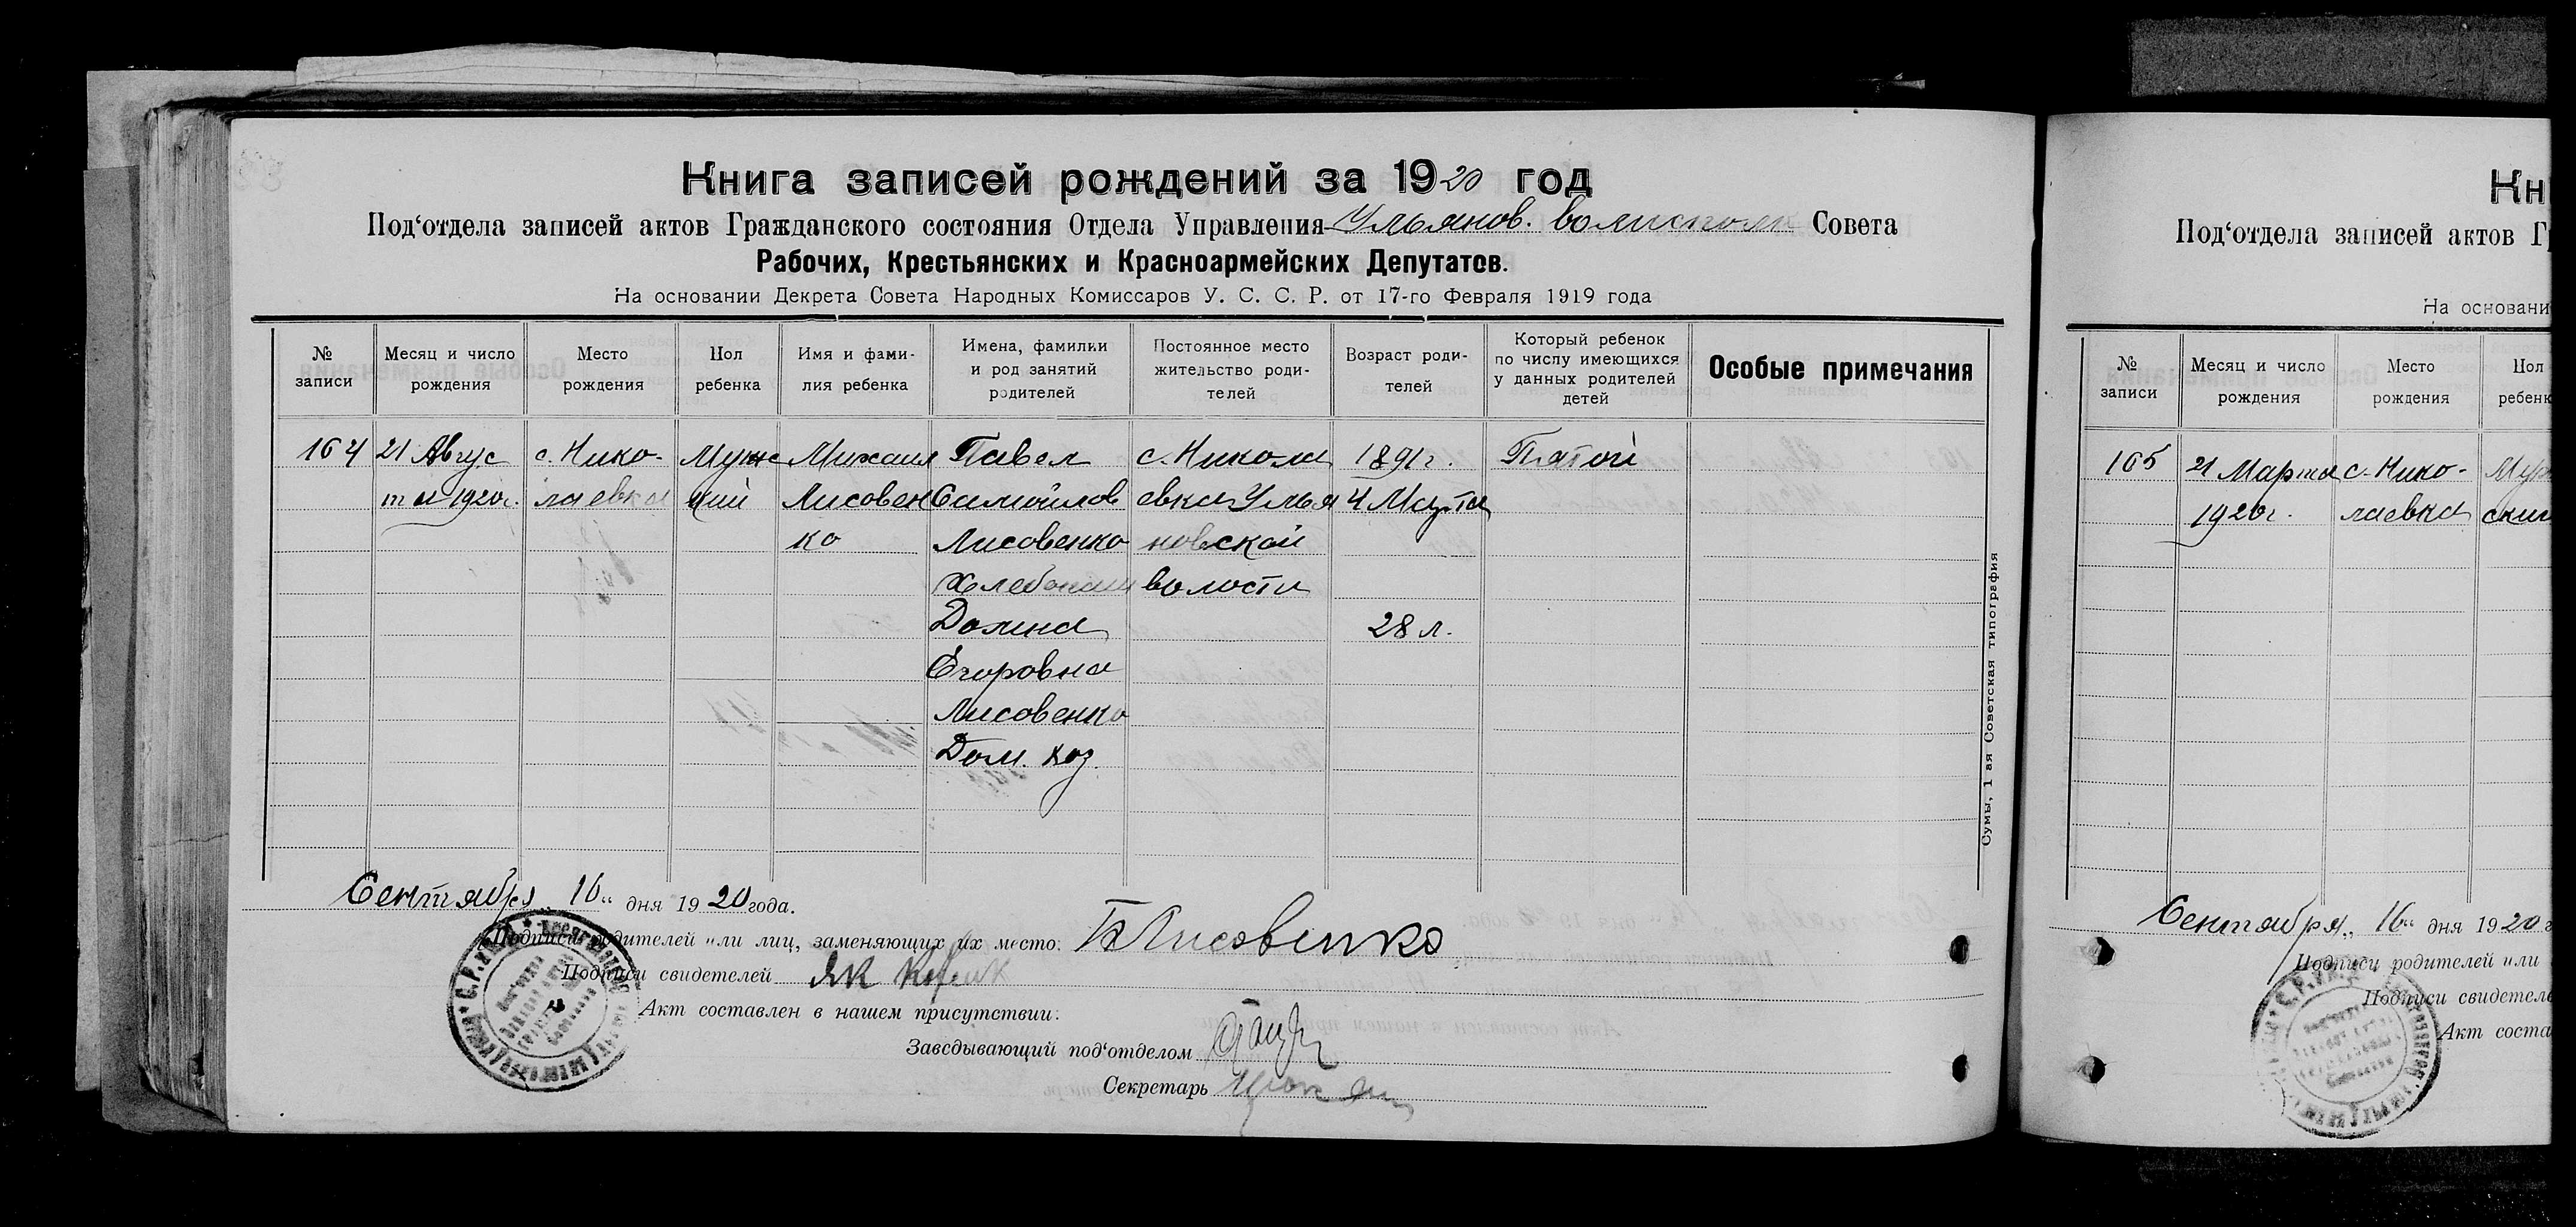 Книга записей рождений за 1920 год
Под‘отдела записей актов Гражданского состояния Отдела Управления Ульянов. Совета
Рабочих, Крестьянских и Красноармейских Депутатов.
На основании Декрета Совета Народных Комиссаров У. С. С. Р. от 17-го Февраля 1919 года
№ записи
Месяц и число рождения
Место рождения
Пол ребенка
Имя и фами-
лия ребенка
Имена, фамилии
и род занятий
родителей
Постоянное место
жительство роди-
телей
Возраст роди-
телей
Который ребенок
по числу имеющихся
у данных родителей
детей
Особые примечания
164
21 Авгус
та 1920г.
с. Нико-
лаевка
Муж
ский
Михаил
Лисовен
ко
Павел
Самойлов
Лисовенко
Хлебопаш
Домна
Егоровна
Лисовенко
Дом. хоз.
с. Никола
евка Улья
новской
волости
1891г.
4 Марта
28 л.
Пятой
Сентября „16“ дня 1920 года.
Подписи родителей или лиц, заменяющих их место: Лисовенко
Подписи свидетелей
Акт составлен в нашем присутствии:
Заведывающий под‘отделом
Секретарь
Сумы, 1 ая Советская типография
Кн
Под‘отдела записей актов Г
На основани
№ записи
Месяц и число рождения
Место рождения
Пол
ребенк
165
21 Марта
1920г.
с. Нико-
лаевка
Муж
ски
Сентября „16“ дня 1920 г
Подписи родителей или
Подписи свидетеле
Акт соста